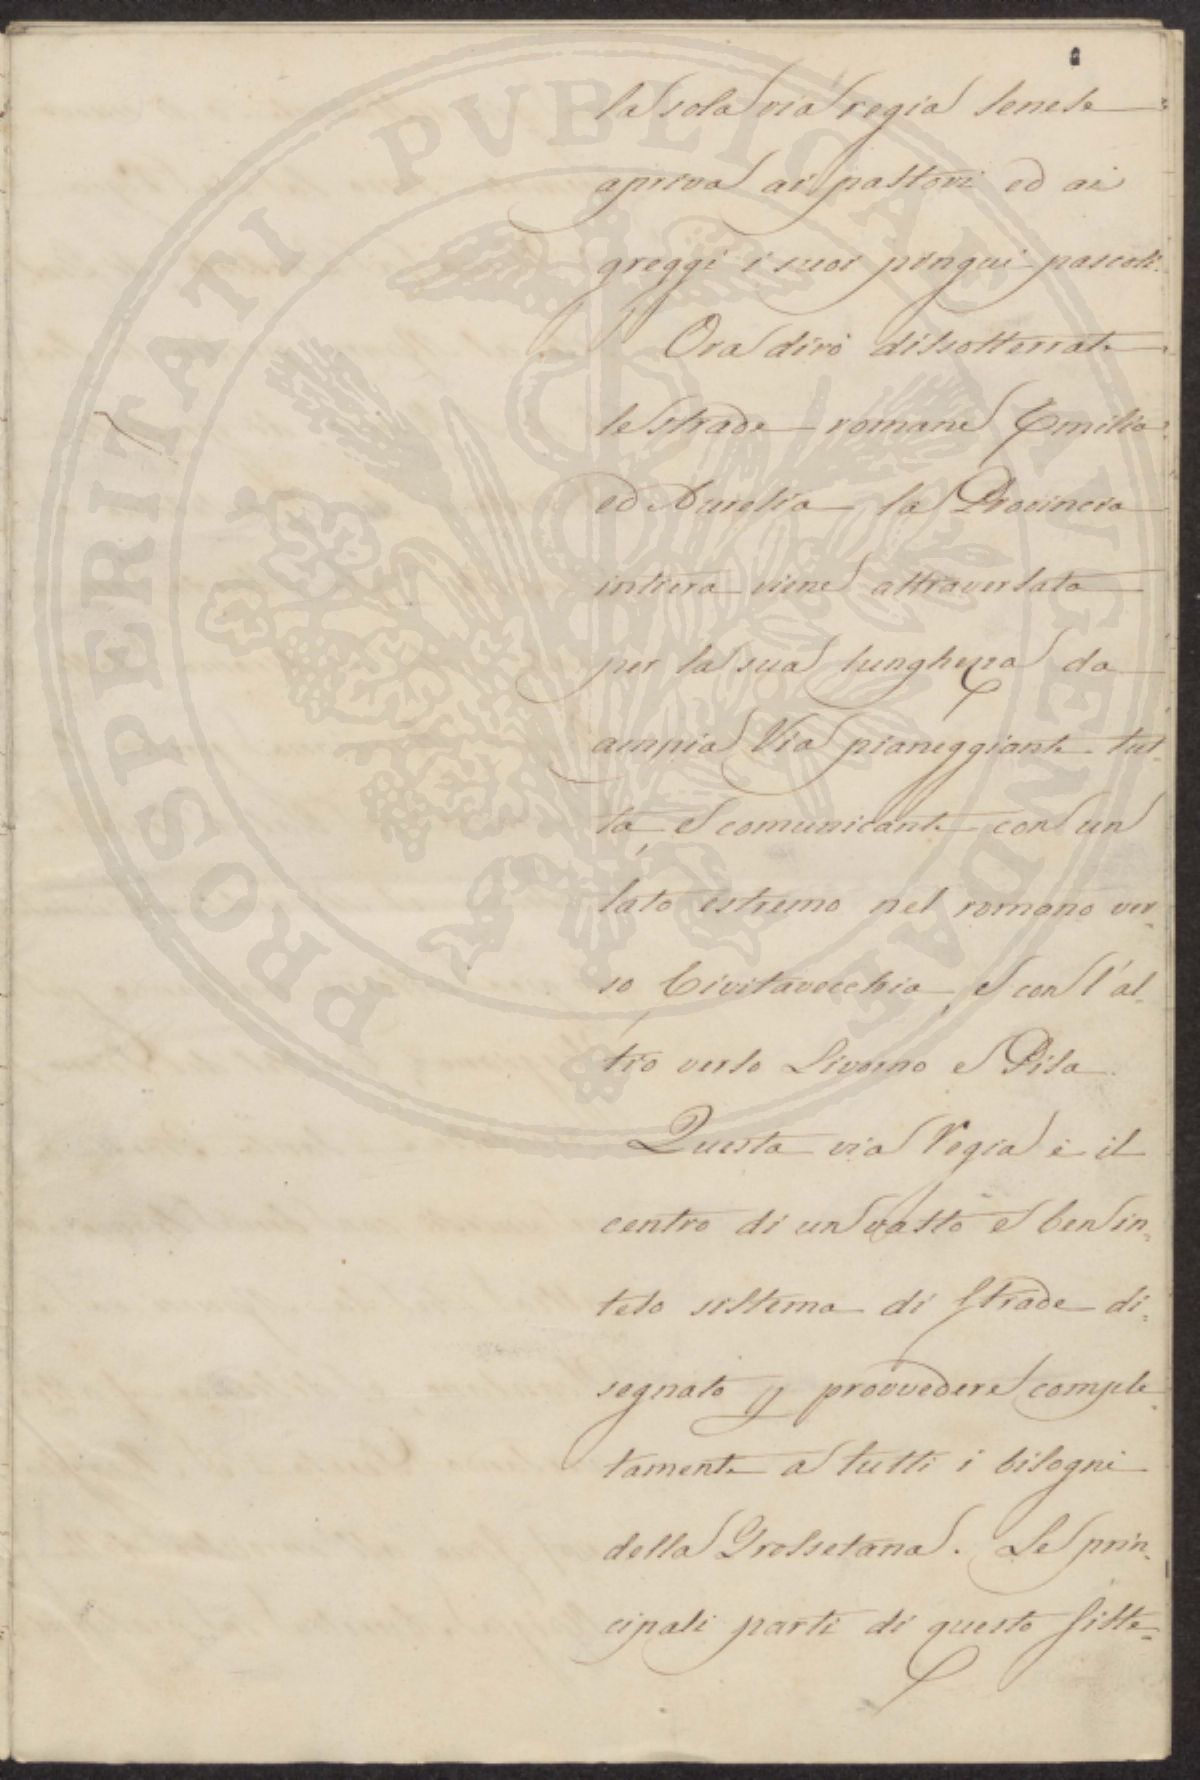 la sola via regia senese
apriva ai pastori ed ai
greggi i suoi pingui pascoli.
Ora dirò dissotterrate
le strade romane Emilia
ed Aurelia la Provincia
intiera viene attraversata
per la sua lunghezza da
ampia Via pianeggiante tut-
ta, e comunicante con un
lato estremo nel romano ver-
so Civitavecchia, e con l'al-
tro verso Livorno e Pisa.
Questa via Regia è il
centro di un vasto e ben in-
teso sistema di Strade di-
segnato p provvedere comple-
tamente a tutti i bisogni
della Grossetana. Le prin-
cipali parti di questo Siste-
PROSPERITATI PVBLICAE AVGENDAE